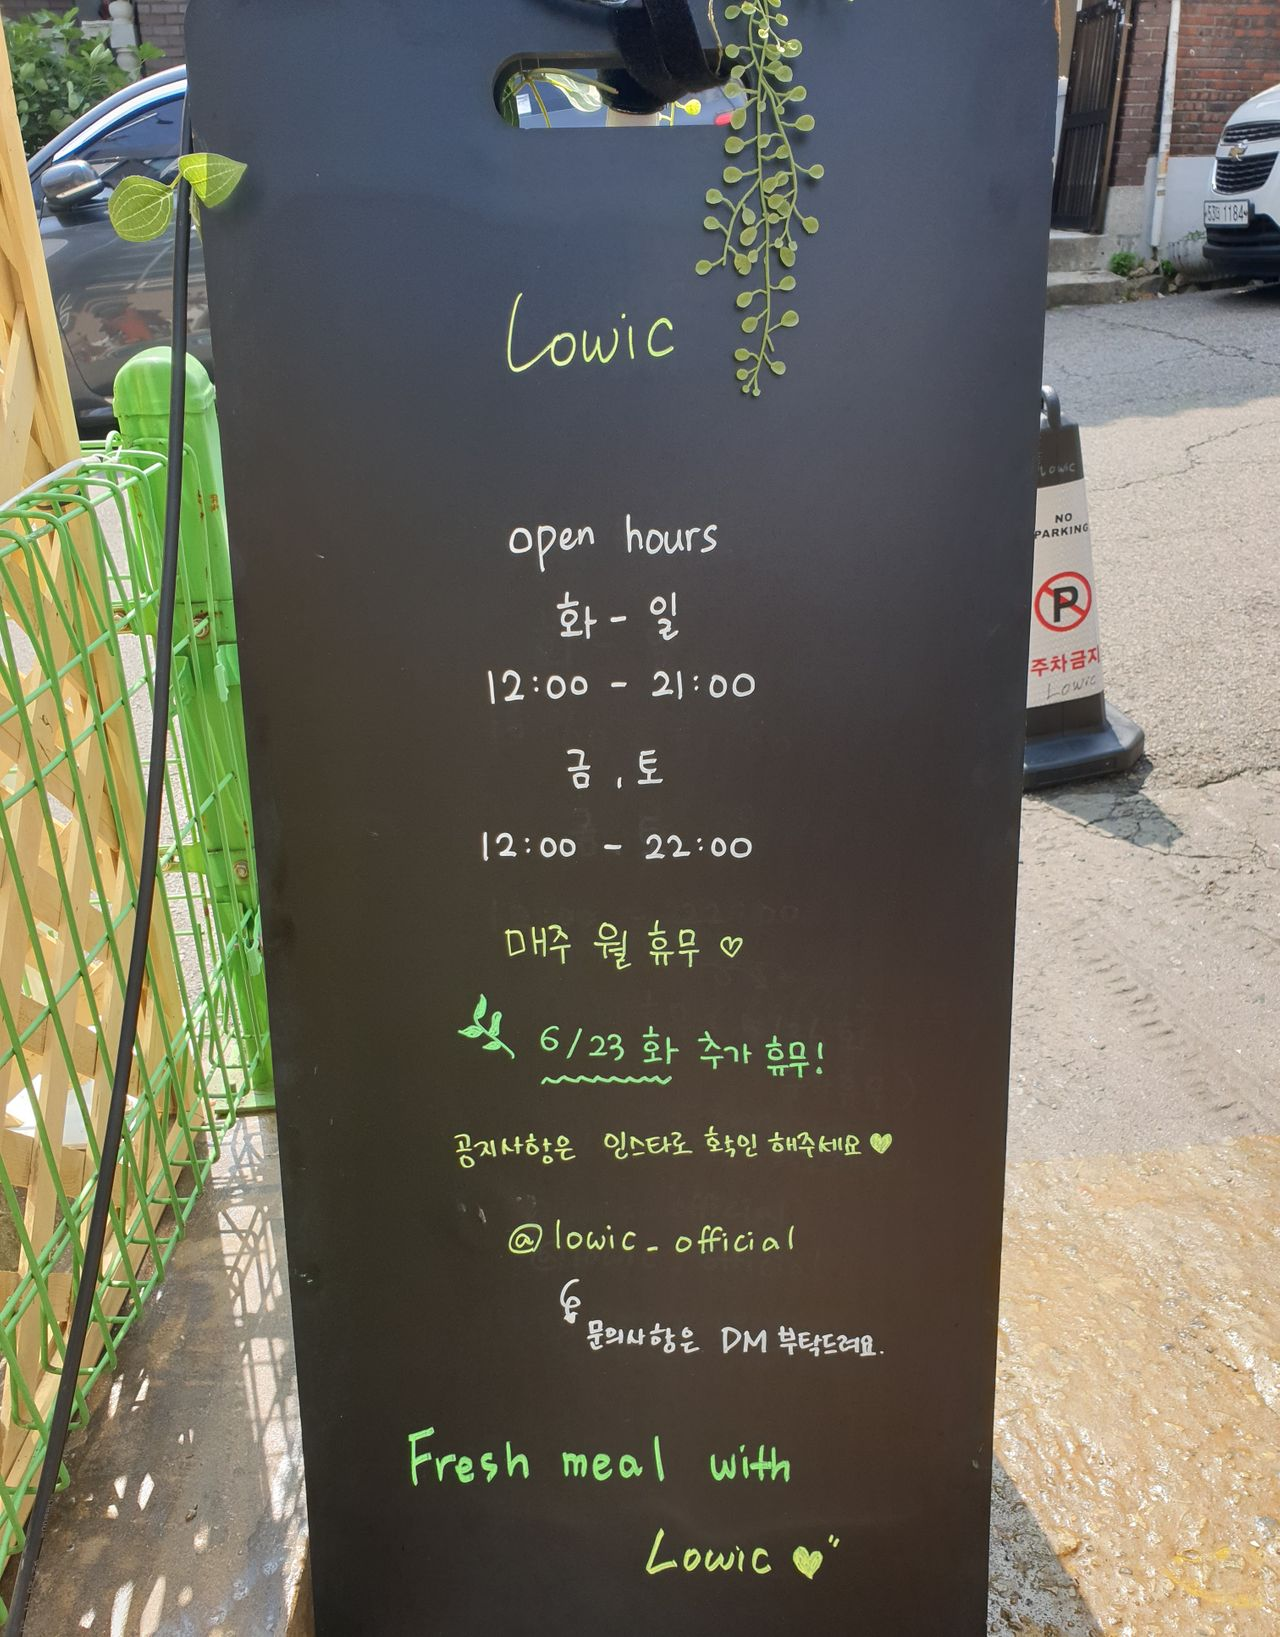 Lowic
open hours
화 - 일
12:00 - 21:00
금, 토
12:00 - 22:00
매주 월 휴무 ♡
6/23 화 추가 휴무!
공지사항은 인스타로 확인 해주세요 ♥
@lowic_official
문의사항은 DM 부탁드려요.
Fresh meal with
Lowic ♥"
Lowic
NO
PARKING
P
주차금지
Lowic
1184